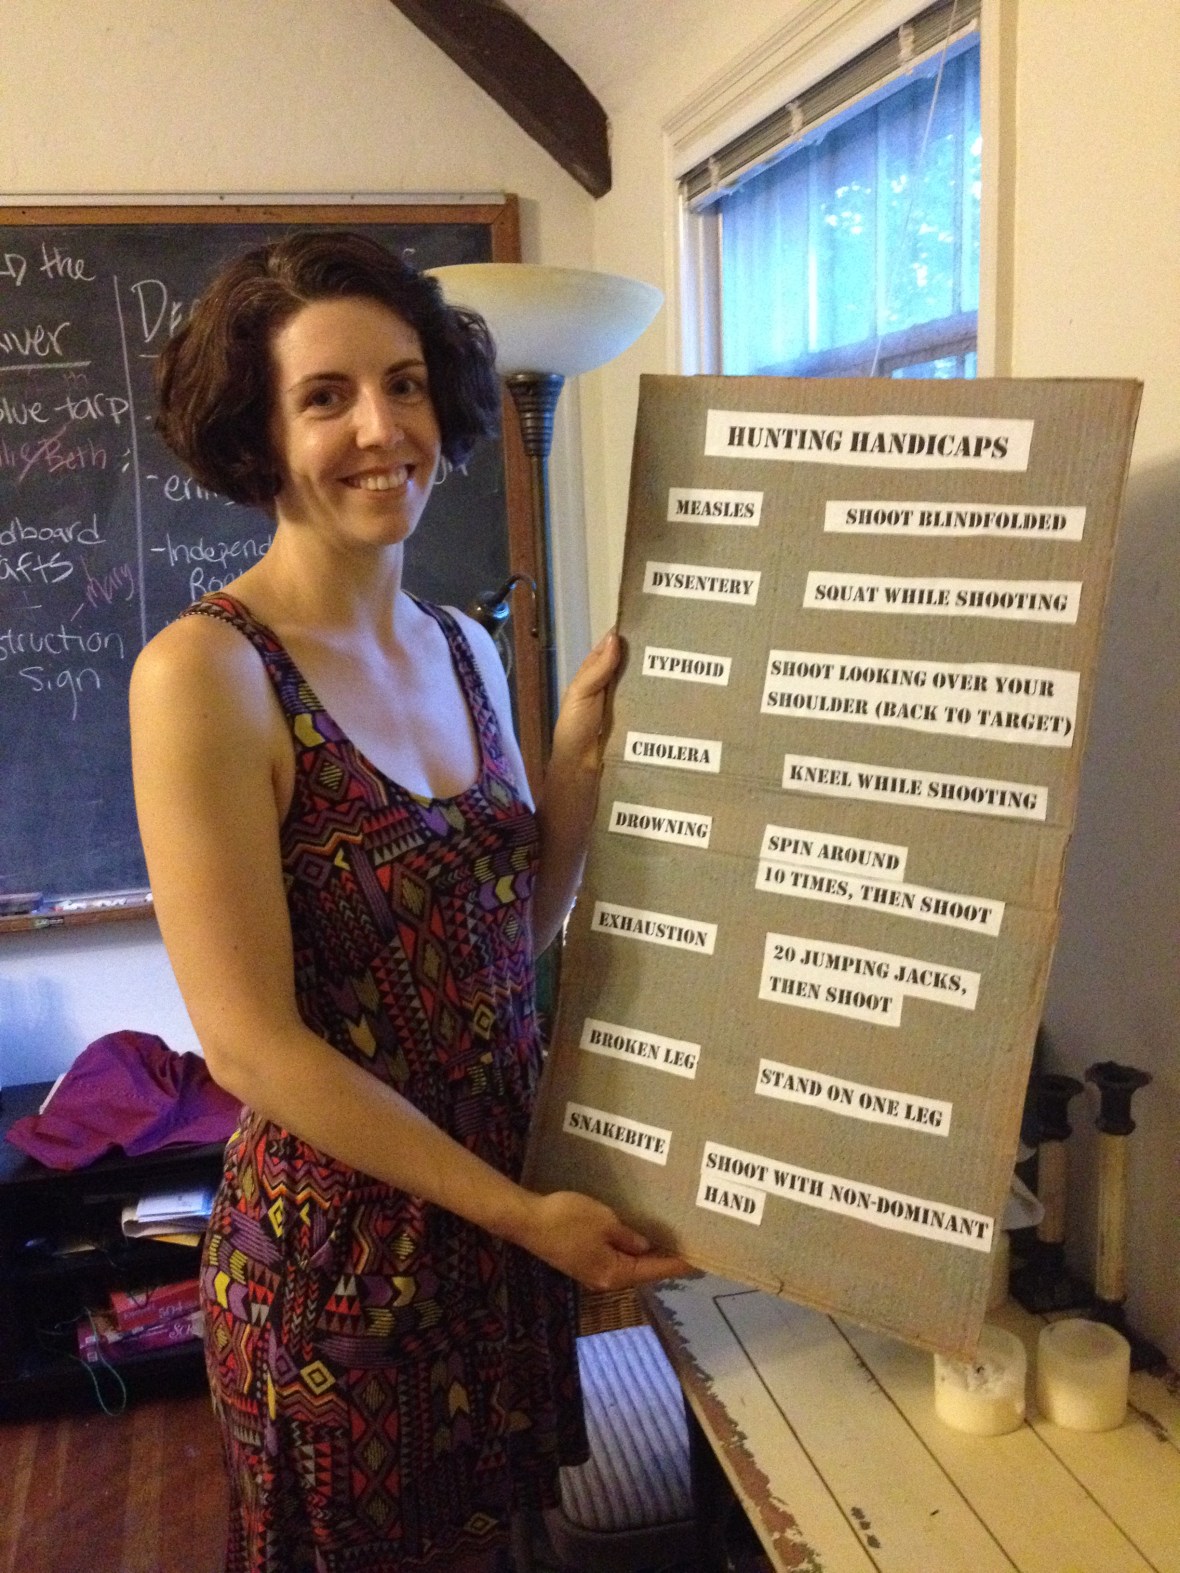 the
blue tarp
Beth
Mary
Sign
HUNTING HANDICAPS
MEASLES
SHOOT BLINDFOLDED
DYSENTERY
SQUAT WHILE SHOOTING
TYPHOID
SHOOT LOOKING OVER YOUR
SHOULDER (BACK TO TARGET)
CHOLERA
KNEEL WHILE SHOOTING
DROWNING
SPIN AROUND
10 TIMES, THEN SHOOT
EXHAUSTION
20 JUMPING JACKS,
THEN SHOOT
BROKEN LEG
STAND ON ONE LEG
SNAKEBITE
SHOOT WITH NON-DOMINANT
HAND